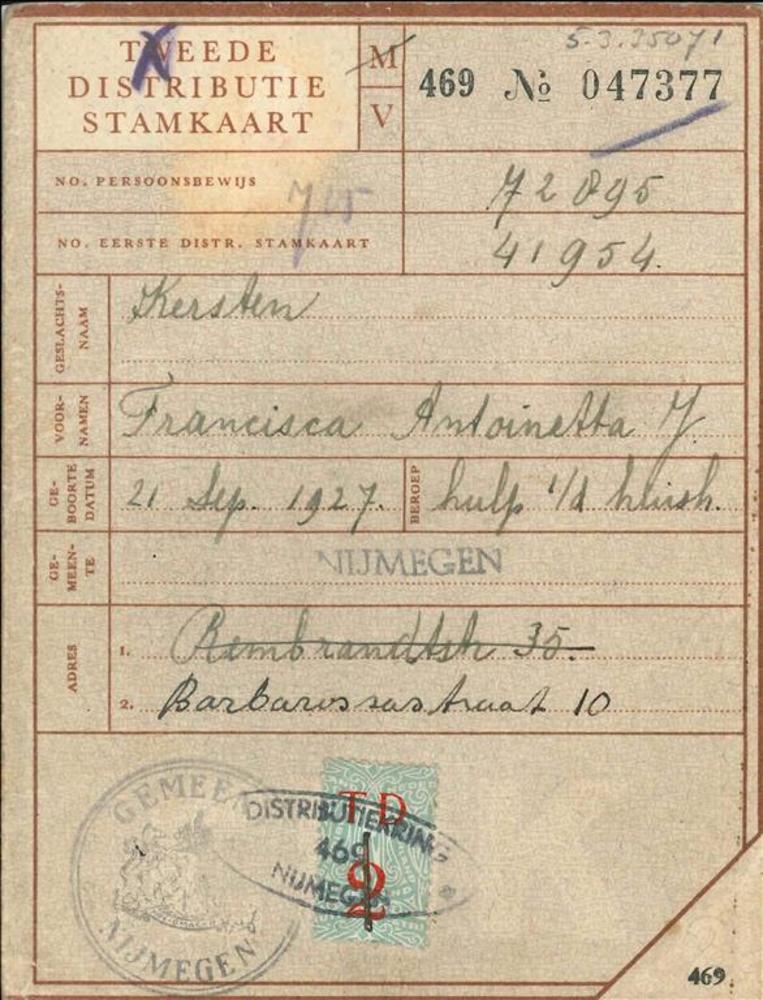 TWEEDE
DISTRIBUTIE
STAMKAART
M
V
5.3.35071
469 № 047377
NO. PERSOONSBEWIJS
72895
NO. EERSTE DISTR. STAMKAART
41954.
GESLACHTS-
NAAM
Kersten
VOOR-
NAMEN
Francisca Antoinetta J.
GE-
BOORTE
DATUM
21 Sep. 1927.
BEROEP
hulp i/d huish.
GE-
MEEN-
TE
NIJMEGEN
ADRES
1. Rembrandtstr 35.
2. Barbarossastraat 10
GEMEENTE
NIJMEGEN
DISTRIBUTIEKRING
469
NIJMEGEN
TD
2
469